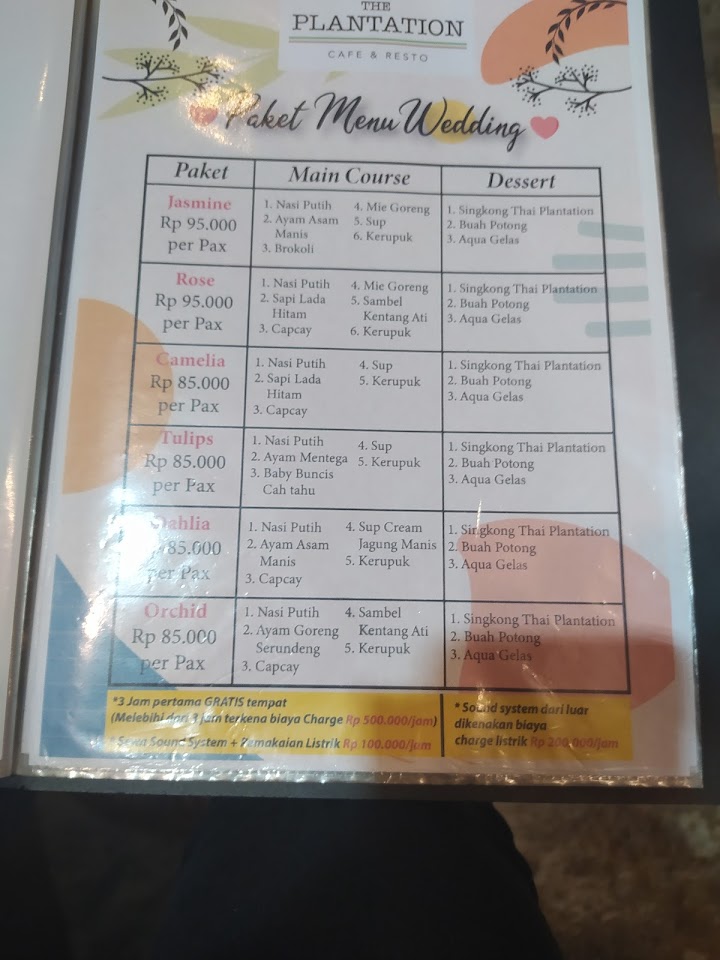 THE
PLANTATION
CAFE & RESTO
Paket Menu Wedding
Paket
Main Course
Dessert
Jasmine
Rp 95.000
per Pax
1. Nasi Putih
2. Ayam Asam
Manis
3. Brokoli
4. Mie Goreng
5. Sup
6. Kerupuk
1. Singkong Thai Plantation
2. Buah Potong
3. Aqua Gelas
Rose
Rp 95.000
per Pax
1. Nasi Putih
2. Sapi Lada
Hitam
3. Capcay
4. Mie Goreng
5. Sambel
Kentang Ati
6. Kerupuk
1. Singkong Thai Plantation
2. Buah Potong
3. Aqua Gelas
Camelia
Rp 85.000
per Pax
1. Nasi Putih
2. Sapi Lada
Hitam
3. Capcay
4. Sup
5. Kerupuk
1. Singkong Thai Plantation
2. Buah Potong
3. Aqua Gelas
Tulips
Rp 85.000
per Pax
1. Nasi Putih
2. Ayam Mentega
3. Baby Buncis
Cah tahu
4. Sup
5. Kerupuk
1. Singkong Thai Plantation
2. Buah Potong
3. Aqua Gelas
Dahlia
Rp 85.000
per Pax
1. Nasi Putih
2. Ayam Asam
Manis
3. Capcay
4. Sup Cream
Jagung Manis
5. Kerupuk
1. Singkong Thai Plantation
2. Buah Potong
3. Aqua Gelas
Orchid
Rp 85.000
per Pax
1. Nasi Putih
2. Ayam Goreng
Serundeng
3. Capcay
4. Sambel
Kentang Ati
5. Kerupuk
1. Singkong Thai Plantation
2. Buah Potong
3. Aqua Gelas
*3 Jam pertama GRATIS tempat
(Melebihi dari 3 jam terkena biaya Charge Rp 500.000/jam)
* Sewa Sound System + Pemakaian Listrik Rp 100.000/jam
* Sound system dari luar
dikenakan biaya
charge listrik Rp 200.000/jam